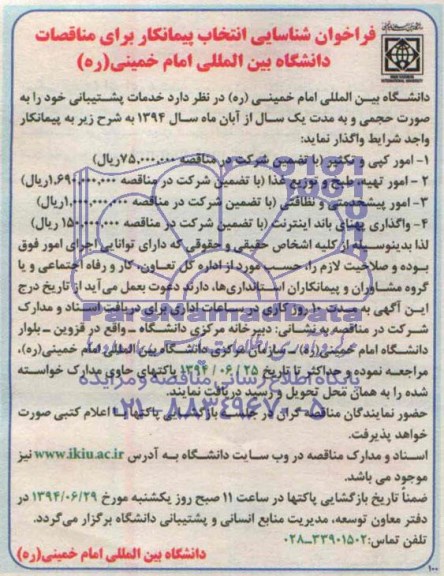 فراخوان شناسایی انتخاب پیمانکار برای مناقصات
دانشگاه بین المللی امام خمینی(ره)
دانشگاه بین المللی امام خمینی (ره) در نظر دارد خدمات پشتیبانی خود را به
صورت حجمی و به مدت یک سال از آبان ماه سال ۱۳۹۴ به شرح زیر به پیمانکار
واجد شرایط واگذار نماید:
۱- امور کپی و تکثیر (با تضمین شرکت در مناقصه ۷۵,۰۰۰,۰۰۰ریال)
۲- امور تهیه، طبخ و توزیع غذا (با تضمین شرکت در مناقصه ۱,۶۹۰,۰۰۰,۰۰۰ریال)
۳- امور پیشخدمتی و نظافتی (با تضمین شرکت در مناقصه ۱,۰۰۰,۰۰۰,۰۰۰ریال)
۴- واگذاری پهنای باند اینترنت (با تضمین شرکت در مناقصه ۱۵۰,۰۰۰,۰۰۰ ریال)
لذا بدینوسیله از کلیه اشخاص حقیقی و حقوقی که دارای توانایی اجرای امور فوق
بوده و صلاحیت لازم را، حسب مورد از اداره کل تعاون، کار و رفاه اجتماعی و یا
گروه مشاوران و پیمانکاران استانداری‌ها، دارند دعوت بعمل می‌آید از تاریخ درج
این آگهی به مدت ۱۰ روز کاری در ساعات اداری برای دریافت اسناد و مدارک
شرکت در مناقصه به نشانی: دبیرخانه مرکزی دانشگاه ـ واقع در قزوین ـ بلوار
دانشگاه امام خمینی(ره) ـ سازمان مرکزی دانشگاه بین المللی امام خمینی(ره)،
مراجعه نموده و حداکثر تا تاریخ ۲۵ / ۰۶ / ۱۳۹۴ پاکتهای حاوی مدارک خواسته
شده را به همان محل تحویل و رسید دریافت نمایند.
حضور نمایندگان مناقصه گران در جلسه بازگشایی پاکتها با اعلام کتبی صورت
خواهد پذیرفت.
اسناد و مدارک مناقصه در وب سایت دانشگاه به آدرس www.ikiu.ac.ir نیز
موجود می باشد.
ضمناً تاریخ بازگشایی پاکتها در ساعت ۱۱ صبح روز یکشنبه مورخ ۱۳۹۴/۰۶/۲۹ در
دفتر معاون توسعه، مدیریت منابع انسانی و پشتیبانی دانشگاه برگزار می‌گردد.
تلفن تماس: ۳۳۹۰۱۵۰۲-۰۲۸
دانشگاه بین المللی امام خمینی (ره)
ParsNamadData
پایگاه اطلاع رسانی مناقصه و مزایده
۰۲۱-۸۸۳۴۹۶۷۰-۵
۱۰۰